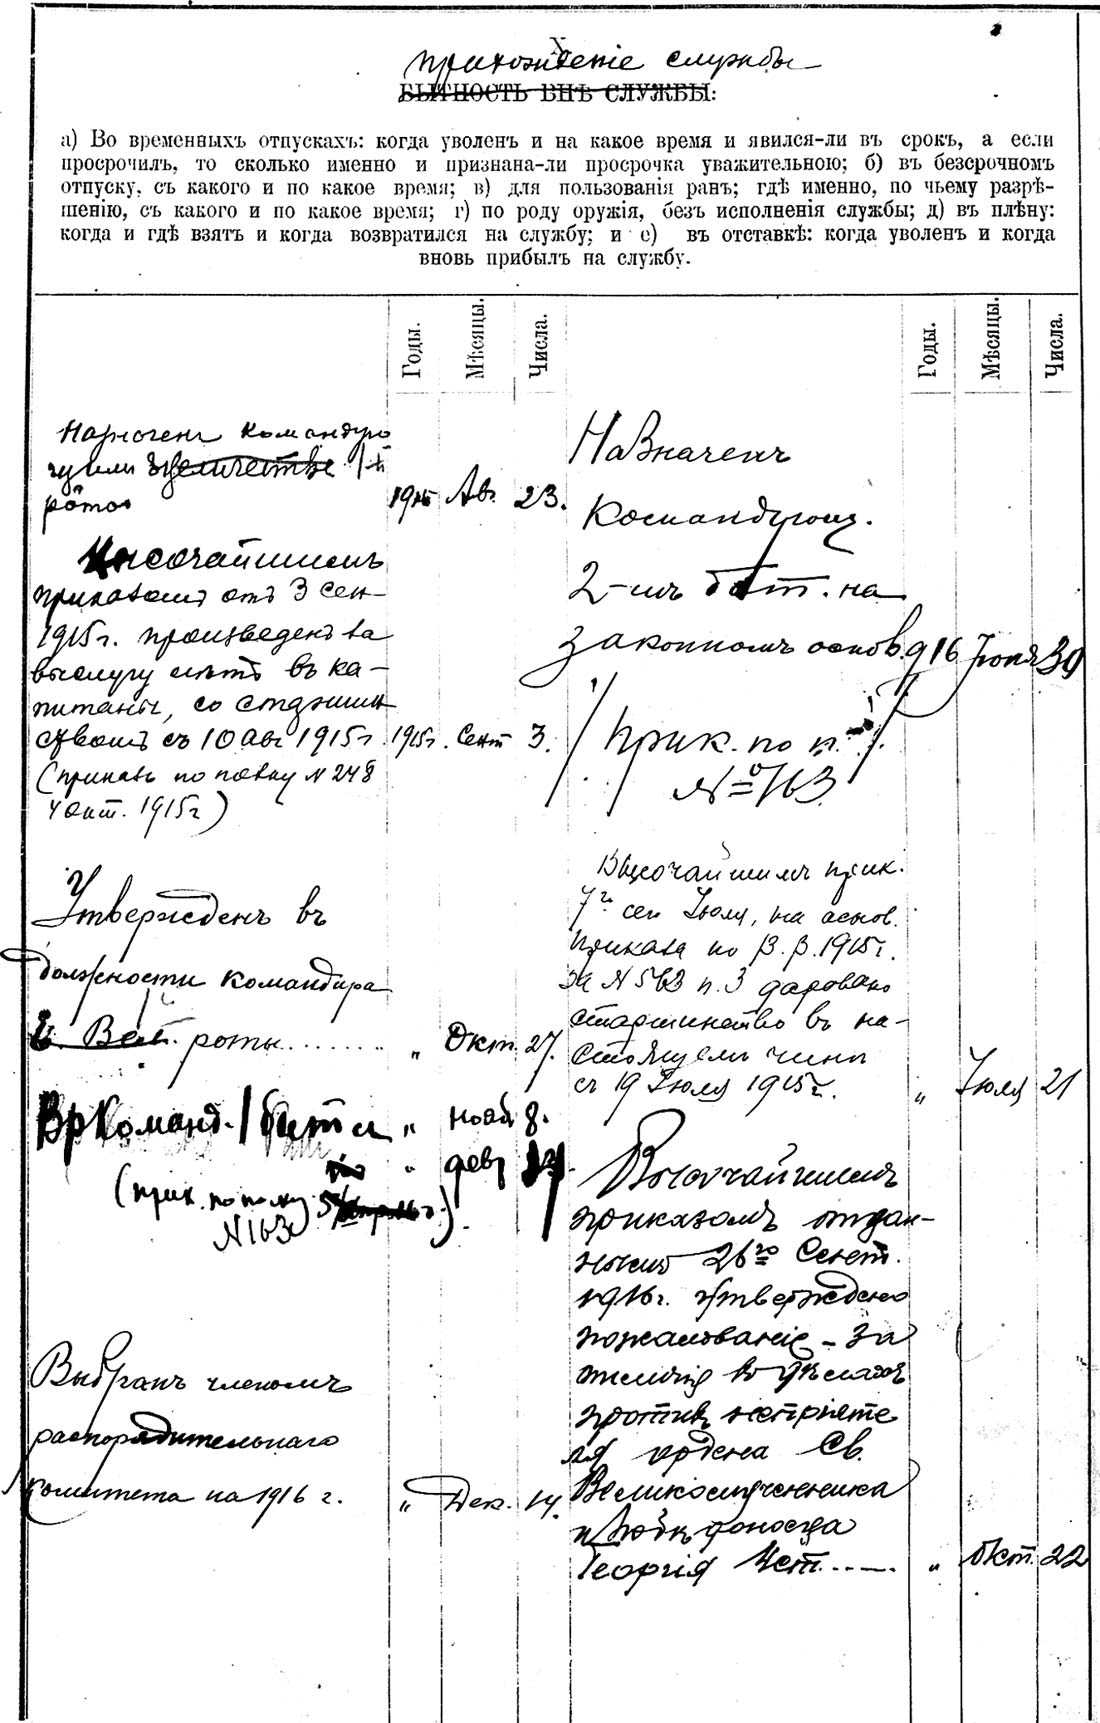 X
прихожденіе службы
БЫТНОСТЬ ВНѢ СЛУЖБЫ:
а) Во временныхъ отпускахъ: когда уволенъ и на какое время и явился-ли въ срокъ, а если
просрочилъ, то сколько именно и признана-ли просрочка уважительною; б) въ безсрочномъ
отпуску, съ какого и по какое время; в) для пользованія ранъ; гдѣ именно, по чьему разрѣ-
шенію, съ какого и по какое время; г) по роду оружія, безъ исполненія службы; д) въ плѣну:
когда и гдѣ взятъ и когда возвратился на службу; и е) въ отставкѣ: когда уволенъ и когда
вновь прибылъ на службу.
Годы. Мѣсяцы. Числа.
командую
щимъ
ротою 1915 Авг. 23.
Высочайшимъ
приказомъ отъ 3 сен-
1915г. произведенъ за
выслугу лѣтъ въ ка-
питаны, со старшин
ствомъ съ 10 авг 1915г. 1915г. Сент 3.
(приказъ по полку N 248
4 окт. 1915г)
Утвержденъ въ
должности командира
роты........ „ Окт. 27.
Вр Команд. 1 бат „ нояб 8.
„ фев
(прик. по полку
N163
Выбранъ членомъ
распорядительнаго
комитета на 1916 г. „ Дек. 14.
Годы. Мѣсяцы. Числа.
Назначенъ
Командующ.
2-мъ бат. на
законномъ основ. 916 Іюня 30
/Прик. по п./
№ 163
Высочайшимъ прик.
7го сего Іюля, на основ.
приказа по В. В. 1915г.
за N 563 п. 3 даровано
старшинство въ на-
стоящемъ чинѣ
съ 19 Іюля 1915г. „ Іюля 21
Высочайшимъ
приказомъ отдан-
нымъ 26го Сент.
1916г. утверждено
пожалованіе - за
отличія въ дѣлахъ
противъ непріяте
ля ордена Св.
Великомученника
и Побѣдоносца
Георгія 4ст...... „ Окт. 22